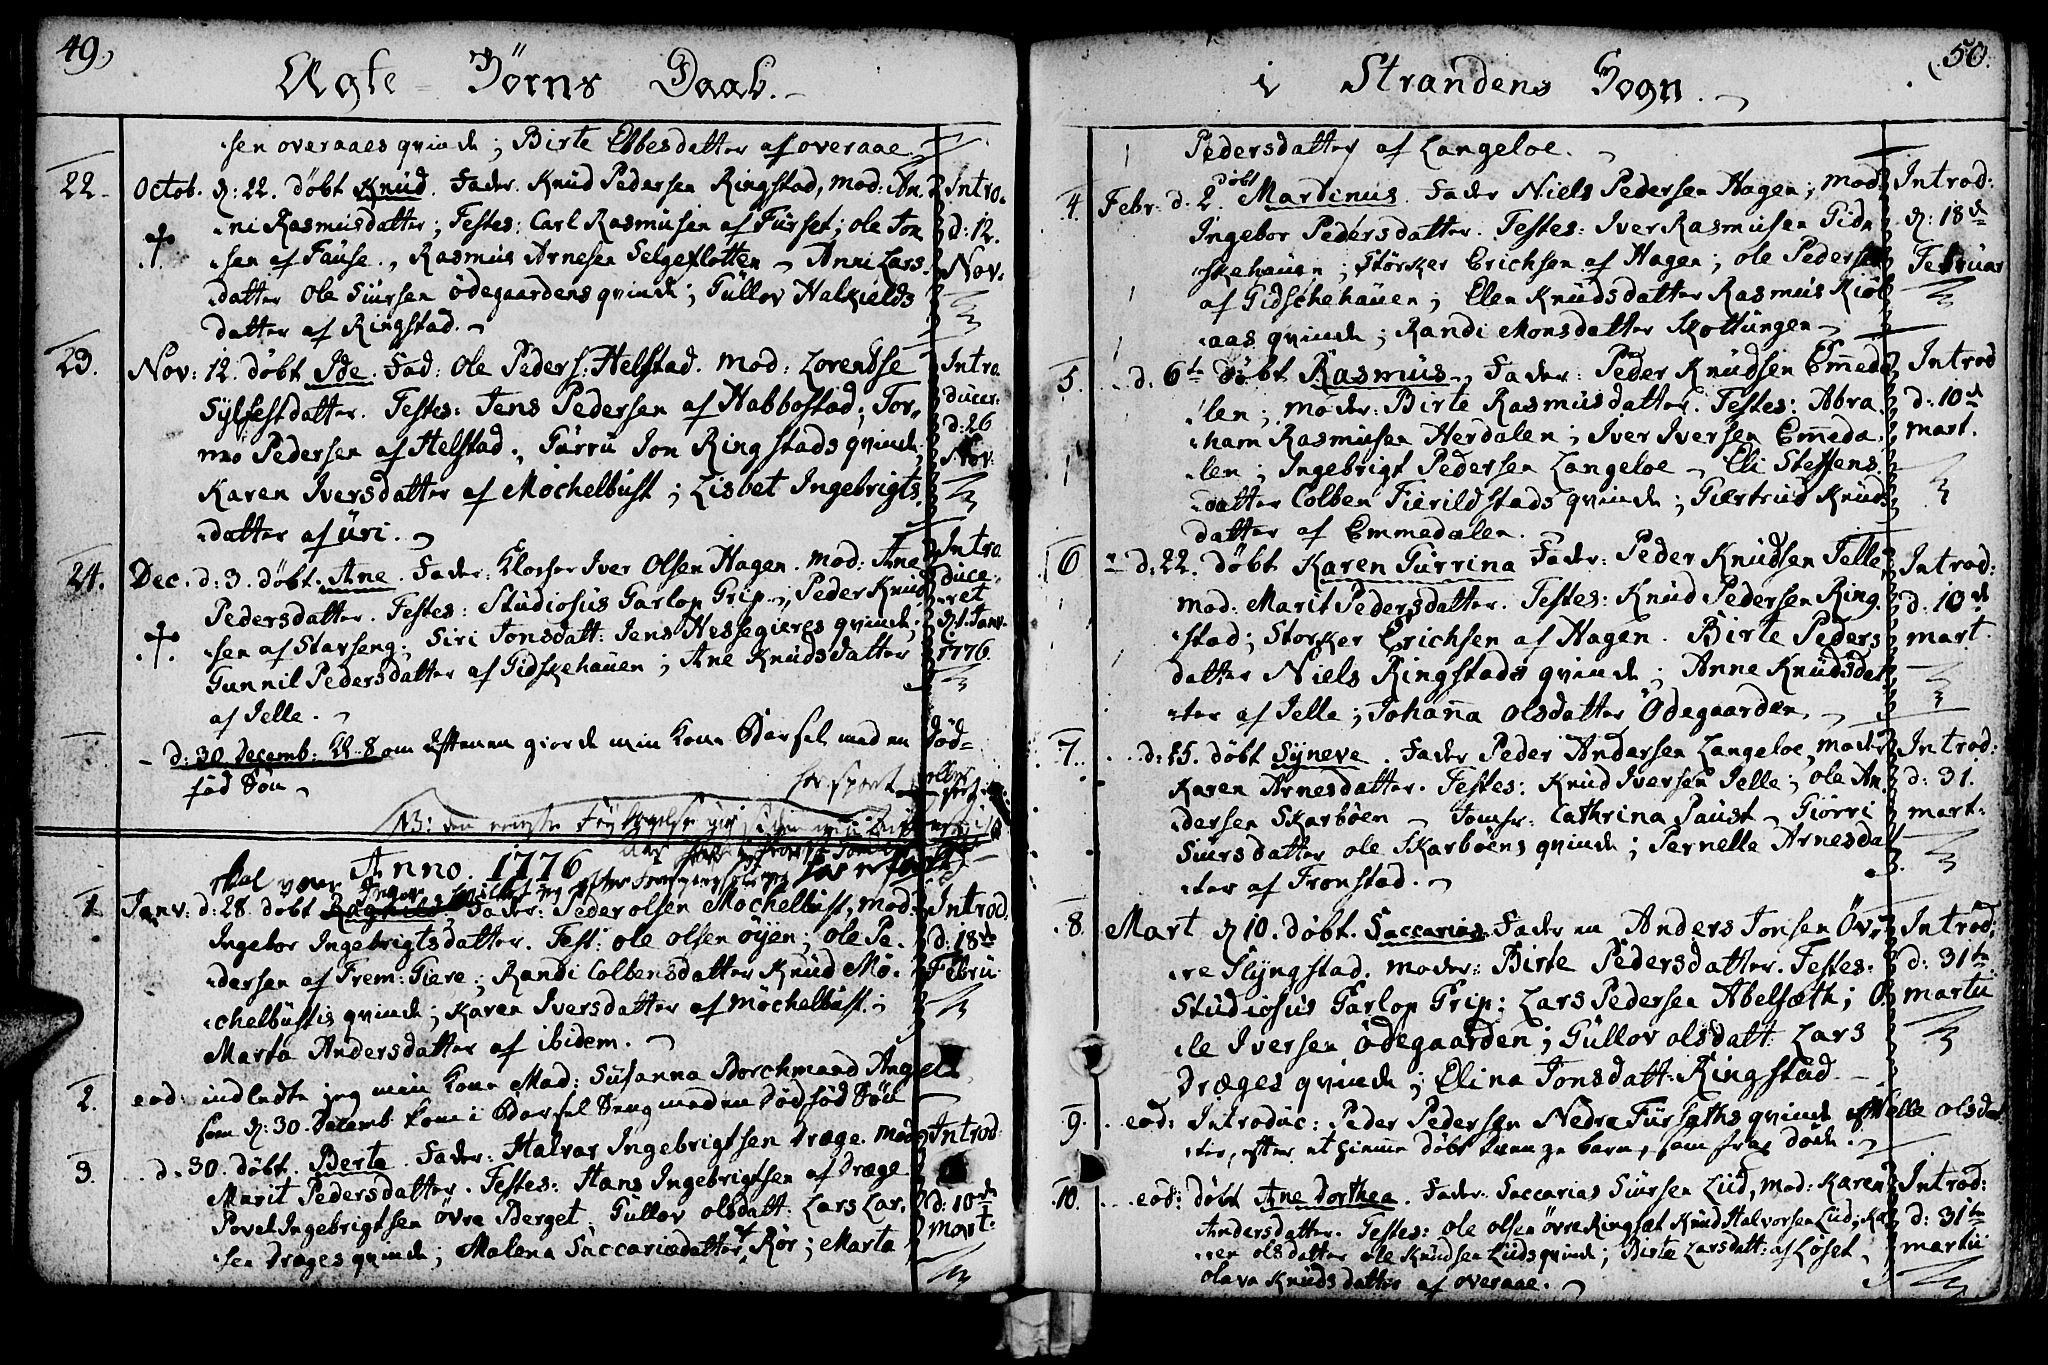 49.)
Ægte Børns Daab.
sen overaaes qvinde; Birte Ebbesdatter af overaae.
22. Octob. d: 22. döbt Knud. Fader. Knud Pedersen Ringstad, mod: An- Intro.
ni Rasmusdatter; Testes: Carl Rasmusen af Furset; ole Jon d: 12.
sen af Fause., Rasmus Arnesen Selgeflotten - Anni Lars. Nov.
datter Ole Siursen ödegaardens qvinde; Gullov Halkields
datter af Ringstad.
23. Nov: 12. döbt Ide. Fad: Ole Peders: Helstad. Mod: Lorendse Intro
Sylfestdatter. Testes: Jens Pedersen af Habbostad; Tor- ducer:
mo Pedersen af Helstad., Gurru Jon Ringstads qvinde; d: 26
Karen Iversdatter af Mochelbust; Lisbet Ingebrigts Nov:
datter af üri.
24. Dec. d: 3. döbt. Ane. Fader: Klocker Iver Olsen Hagen. Mod: Ane Intro
Pedersdatter. Testes: Studiosus Garlop Grip., Peder Knud duce-
sen af Starseng; Siri Jonsdatt: Jens Hessegieres qvinde; ret
Gunnil Pedersdatter af Gidskehauen; Ane Knudsdatter d: 1. Janv. 1776.
af Jelle.
- d: 30 Decemb: Kl. 8 om Aftenen giorde min Kone Barsel med en död-
föd Sön
Anno. 1776
1 Janv: d: 28. döbt Ragnild Inger Fader: Peder olsen Mochelbust, mod: Introd.
Ingebor Ingebrigtsdatter. Test: ole olsen öyen; ole Pe- d: 18de
dersen af Frem: Giere; Randi Colbensdatter Knud Mö- Febru:
chelbustis qvinde; Karen Iversdatter af Möchelbust;
Marta Andersdatter af ibidem.
2. eod: indledte jeg min Kone Mad: Susanna Borchmand Angell
som d: 30. Decemb kom i Barsel Seng med en Dödföd Sön
3. d. 30. döbt. Berte. Fader: Halvar Ingebrigtsen Dræge. Mod: Introd.
Marit Pedersdatter. Testes: Hans Ingebrigtsen af Dræge
Povel Ingebrigtsen övre Berget; Gullov olsdatt: Lars Lar- d: 10de
sen Dræges qvinde; Malena Saccariædatter Rör; Marta mart:
50.
i Strandens Sogn.
Pedersdatter af Langeloe.
4. Febr: d. 2. döbt Martinus. Fader Niels Pedersen Hagen; mod: Introd:
Ingebor Pedersdatter. Testes: Iver Rasmusen Gid- d: 18de
skehaugn; Störker Erichsen af Hagen; ole Pedersen Februar
af Gidschehauen; Elen Knudsdatter Rasmus Riöl
aas qvinde; Randi Monsdatter Skottungen
5. d. 6te döbt Rasmus. Fader: Peder Knudsen Em̄eda Introd
len; moder: Birte Rasmusdatter. Testes: Abra- d: 10de
ham Rasmusen Herdalen; Iver Iversen Em̄eda- mart.
len; Ingebrigt Pedersen Langeloe - Eli Steffens
datter Colben Fierildstads qvinde; Giertrud Knuds
datter af Emmedalen.
6 d: 22. döbt Karen Gurrina Fader: Peder Knudsen Jelle, Introd:
mod: Marit Pedersdatter. Testes: Knud Pedersen Ring- d. 10de
stad; Storker Erichsen af Hagen. Birte Peders mart.
datter Niels Ringstads qvinde; Anne Knudsdat
ter af Jelle; Johan̄a olsdatter Ödegaarden.
7. d: 25. döbt Syneve. Fader Peder Andersen Langeloe, moder Introd:
Karen Arnesdatter. Testes: Knud Iversen Jelle; ole An- d: 31.
dersen Skarböen - Jomfr: Cathrina Paust - Giörri mart.
Siursdatter ole Skarböens qvinde; Pernelle Arnesdat
ter af Tronstad.
8. Mart d 10. döbt. Saccarias. Fader en Anders Jonsen Öv- Introd:
re Slyngstad. moder: Birte Pedersdatter. Testes: d: 31te
Studiosus Garlop Grip; Lars Pedersen Abelsæth; O- martii
le Iversen Ödegaarden; Gullov olsdatt: Lars
Dræges qvinde; Elina Jonsdatt: Ringstad
9. eod: Introduc: Peder Pedersen Nedre Fursæths qvinde Nelle olsdat
ter, efter et hiemme döbt barn, som strax döde.
10. eod: döbt Ane Dorthea. Fader: Saccarias Siursen Lud, mod: Karen Introd:
Andersdatter. Testes: ole olsen övre Ringset Knud Halvorsen Lud; Ka- d: 31te
ren olsdatter ole Knudsen Luds qvinde; Birte Larsdatt: af Löset, martii
olava Knudsdatter af overaae.